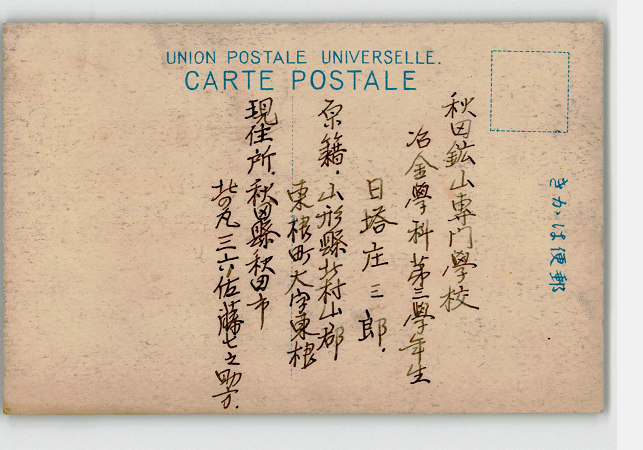 UNION POSTALE UNIVERSELLE.
CARTE POSTALE
きかは便郵
秋田鉱山専門學校
冶金學科第三學年生
日塔庄三郎.
原籍.山形縣北村山郡
東根町大字東根
現住所.秋田縣秋田市
佐藤七之助方.